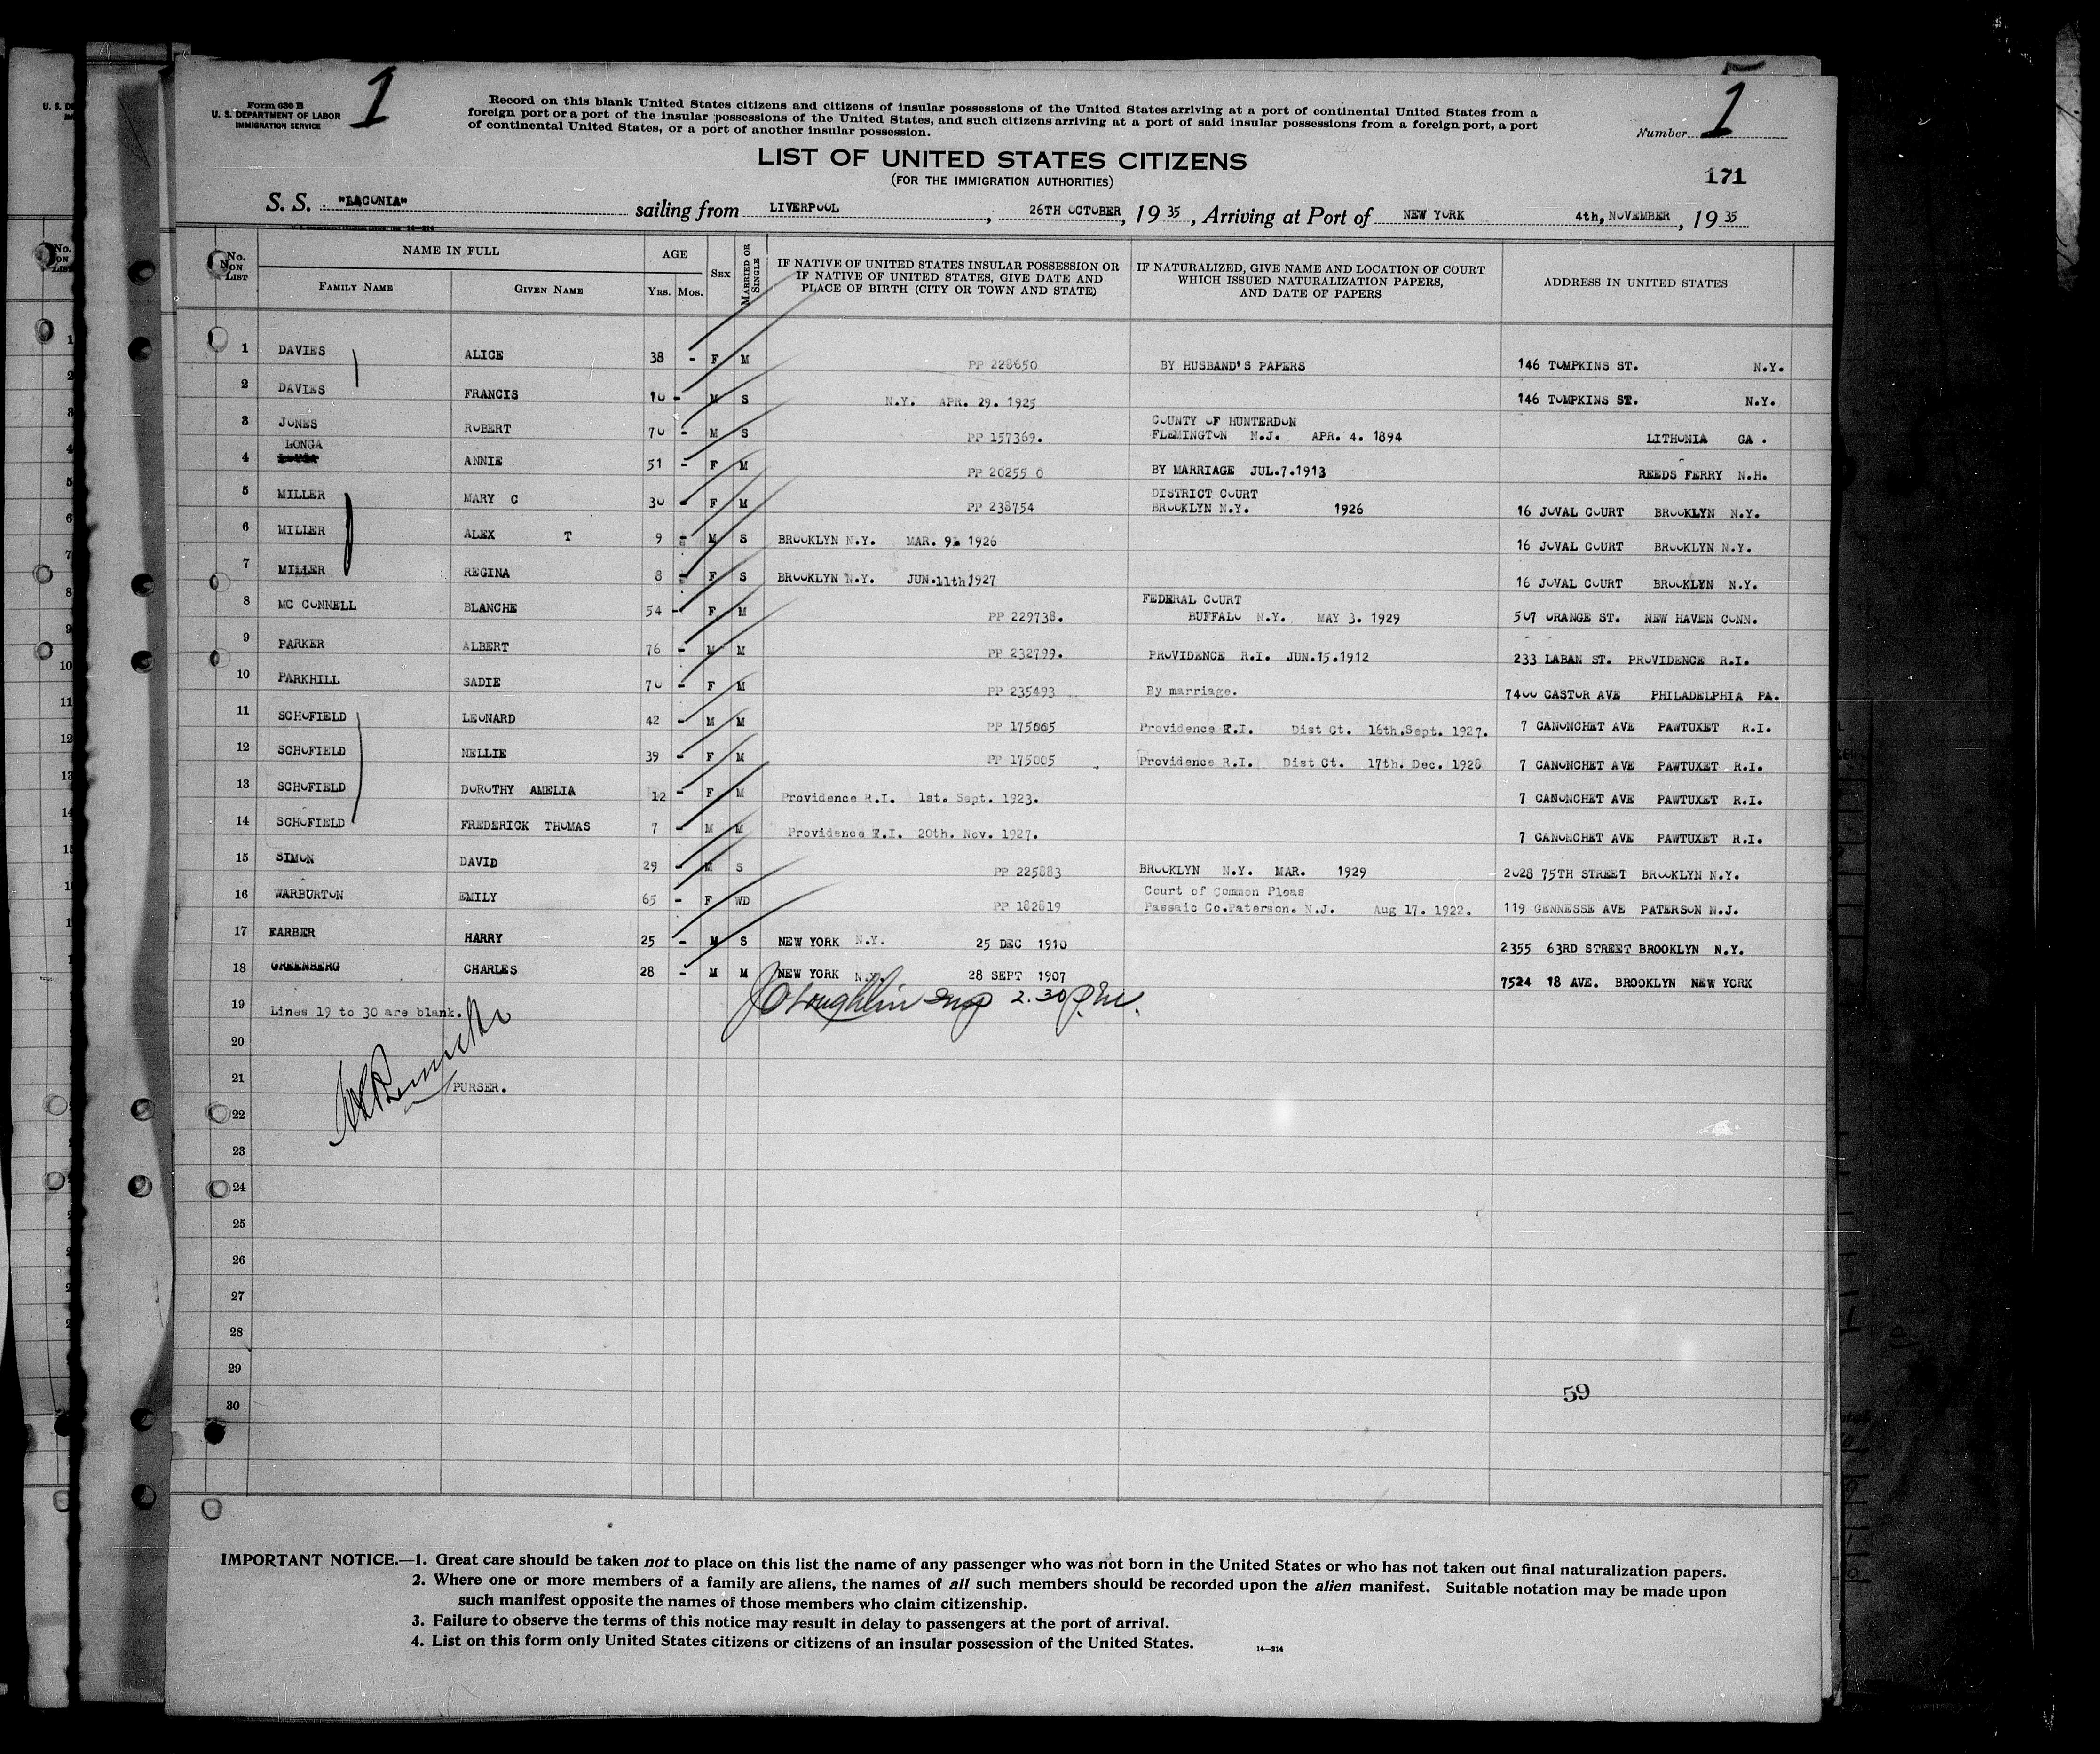 Form 630 B
U. S. DEPARTMENT OF LABOR
IMMIGRATION SERVICE
1
Record on this blank United States citizens and citizens of insular possessions of the United States arriving at a port of continental United States from a
foreign port or a port of the insular possessions of the United States, and such citizens arriving at a port of said insular possessions from a foreign port, a port
of continental United States, or a port of another insular possession.
Number 5
LIST OF UNITED STATES CITIZENS
(FOR THE IMMIGRATION AUTHORITIES)
171
S. S. "LACONIA" sailing from LIVERPOOL, 26TH OCTOBER, 19 35, Arriving at Port of NEW YORK 4th, NOVEMBER, 19 35
No. ON LIST
NAME IN FULL
FAMILY NAME GIVEN NAME
AGE
YRS. MOS.
SEX
MARRIED OR SINGLE
IF NATIVE OF UNITED STATES INSULAR POSSESSION OR
IF NATIVE OF UNITED STATES, GIVE DATE AND
PLACE OF BIRTH (CITY OR TOWN AND STATE)
IF NATURALIZED, GIVE NAME AND LOCATION OF COURT
WHICH ISSUED NATURALIZATION PAPERS,
AND DATE OF PAPERS
ADDRESS IN UNITED STATES
1 DAVIES ALICE 38 - F M PP 228650 BY HUSBAND'S PAPERS 146 TOMPKINS ST. N.Y.
2 DAVIES FRANCIS 10 - M S N.Y. APR. 29. 1925 146 TOMPKINS ST. N.Y.
COUNTY OF HUNTERDON
3 JONES ROBERT 70 - M S PP 157369. FLEMINGTON N.J. APR. 4. 1894 LITHONIA GA.
LONGA
4 ANNIE 51 - F M PP 20255 0 BY MARRIAGE JUL.7.1913 REEDS FERRY N.H.
DISTRICT COURT
5 MILLER MARY C 30 - F M PP 238754 BROOKLYN N.Y. 1926 16 JOVAL COURT BROOKLYN N.Y.
6 MILLER ALEX T 9 - M S BROOKLYN N.Y. MAR. 9. 1926 16 JOVAL COURT BROOKLYN N.Y.
7 MILLER REGINA 8 - F S BROOKLYN N.Y. JUN.11th,1927 16 JOVAL COURT BROOKLYN N.Y.
FEDERAL COURT
8 MC CONNELL BLANCHE 54 - F M PP 229738. BUFFALO N.Y. MAY 3. 1929 507 ORANGE ST. NEW HAVEN CONN.
9 PARKER ALBERT 76 - M M PP 232799. PROVIDENCE R.I. JUN.15.1912 233 LABAN ST. PROVIDENCE R.I.
10 PARKHILL SADIE 70 - F M PP 235493 By marriage. 7400 CASTOR AVE PHILADELPHIA PA.
11 SCHOFIELD LEONARD 42 - M M PP 175005 Providence R.I. Dist Ct. 16th.Sept. 1927. 7 CANONCHET AVE PAWTUXET R.I.
12 SCHOFIELD NELLIE 39 - F M PP 175005 Providence R.I. Dist Ct. 17th. Dec. 1928 7 CANONCHET AVE PAWTUXET R.I.
13 SCHOFIELD DOROTHY AMELIA 12 - F M Providence R.I. 1st. Sept. 1923. 7 CANONCHET AVE PAWTUXET R.I.
14 SCHOFIELD FREDERICK THOMAS 7 - M M Providence R.I. 20th. Nov. 1927. 7 CANONCHET AVE PAWTUXET R.I.
15 SIMON DAVID 29 - M S PP 225883 BROOKLYN N.Y. MAR. 1929 2028 75TH STREET BROOKLYN N.Y.
Court of Common Pleas
16 WARBURTON EMILY 65 - F WD PP 182819 Passaic Co.Paterson. N.J. Aug 17. 1922. 119 GENNESSE AVE PATERSON N.J.
17 FARBER HARRY 25 - M S NEW YORK N.Y. 25 DEC 1910 2355 63RD STREET BROOKLYN N.Y.
18 GREENBERG CHARLES 28 - M M NEW YORK N.Y. 28 SEPT 1907 7524 18 AVE. BROOKLYN NEW YORK
J O'Loughlin Insp 2.30 P.M.
19 Lines 19 to 30 are blank.
20
21 PURSER.
22
23
24
25
26
27
28
29
59
30
IMPORTANT NOTICE.—1. Great care should be taken not to place on this list the name of any passenger who was not born in the United States or who has not taken out final naturalization papers.
2. Where one or more members of a family are aliens, the names of all such members should be recorded upon the alien manifest. Suitable notation may be made upon
such manifest opposite the names of those members who claim citizenship.
3. Failure to observe the terms of this notice may result in delay to passengers at the port of arrival.
4. List on this form only United States citizens or citizens of an insular possession of the United States.
14—214